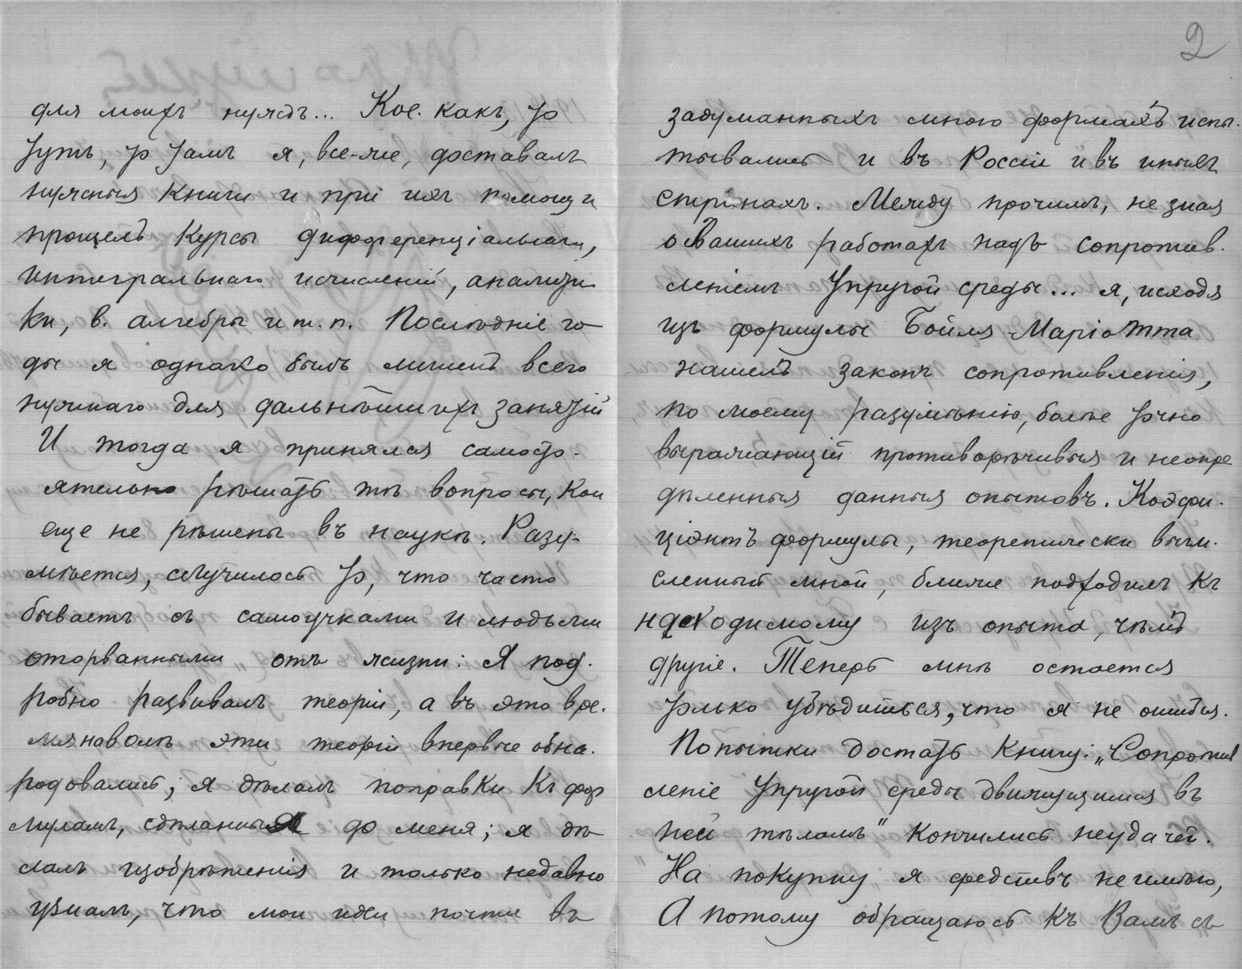 для моихъ нуждъ... Кое-какъ, то
тутъ, то тамъ я, все-же, доставалъ
нужныя книги и при ихъ помощи
прошелъ курсы дифференціальнаго,
интегральнаго исчисленій, аналити-
ки, в. алгебры и т. п. Послѣдніе го-
ды я однако былъ лишенъ всего
нужнаго для дальнѣйшихъ занятій
И тогда я принялся самосто-
ятельно рѣшать тѣ вопросы, кои
еще не рѣшены въ наукѣ. Разу-
мѣется, случилось то, что часто
бываетъ съ самоучками и людьми
оторванными отъ жизни: Я под-
робно развивалъ теоріи, а въ это вре-
мя на волѣ эти теоріи впервые обна-
родовались; я дѣлалъ поправки къ фор
муламъ, сдѣланныя до меня; я дѣ-
лалъ изобрѣтенія и только недавно
узналъ, что мои идеи почти въ
2
задуманныхъ мною формахъ испы-
тывались и въ Россіи и въ иныхъ
странахъ. Между прочимъ, не зная
о Вашихъ работахъ надъ сопротив-
леніемъ упругой среды... я, исходя
изъ формулы Бойля-Маріотта
нашелъ законъ сопротивленія,
по моему разумѣнію, болѣе точно
выражающій противорѣчивыя и неопре
дѣленныя данныя опытовъ. Коэфи-
ціэнтъ формулы, теоретически вычи-
сленный мной, ближе подходилъ къ
находимому изъ опыта, чѣмъ
другіе. Теперь мнѣ остается
только убѣдиться, что я не ошибся.
Попытки достать книгу: „Сопротив
леніе упругой среды движущимся въ
ней тѣламъ" кончились неудачей.
На покупку я средствъ не имѣю,
А потому обращаюсь къ Вамъ съ